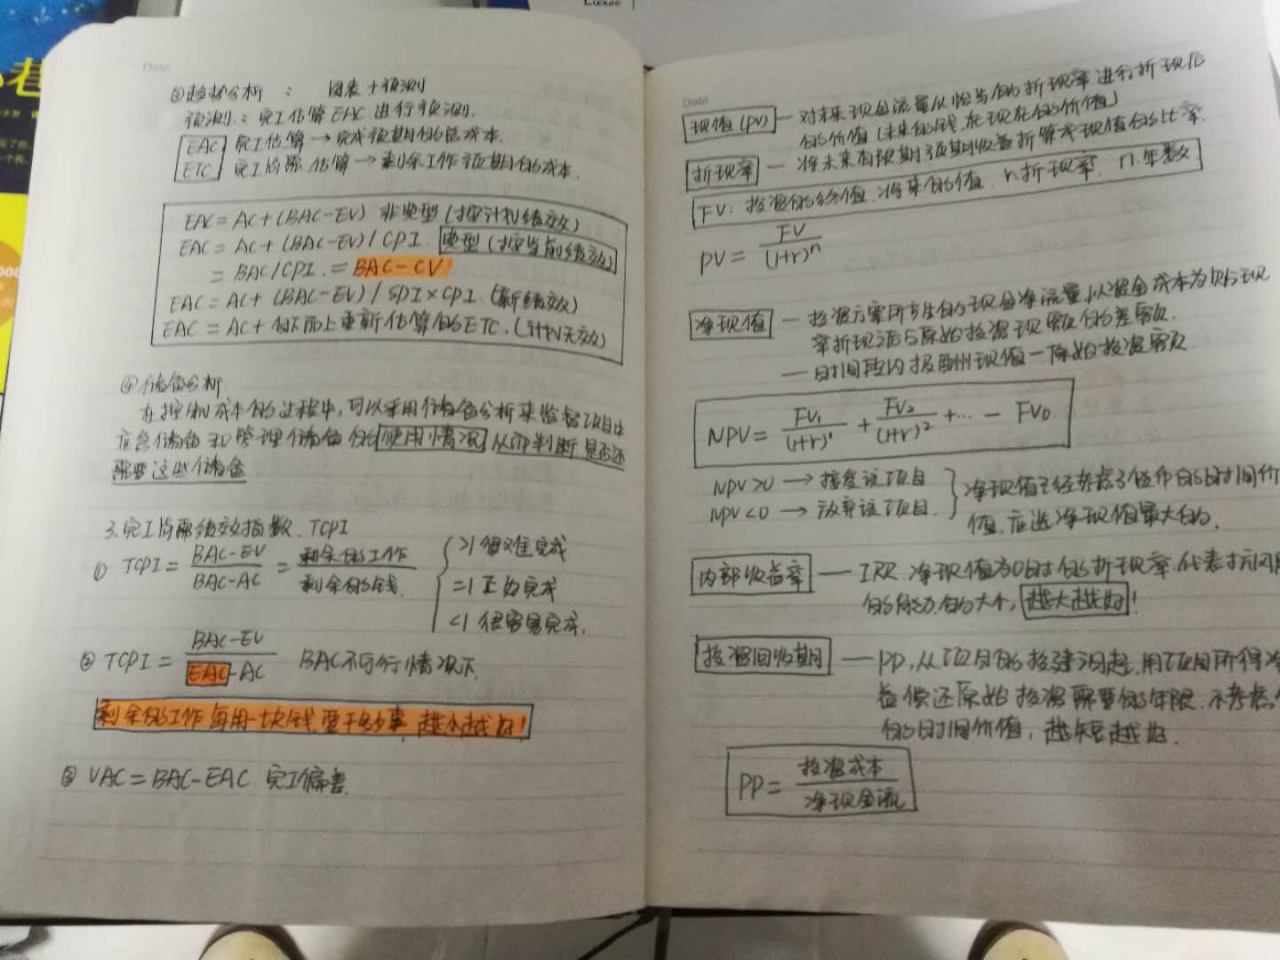 Date
③趋势分析： 图表+预测
预测：完工估算EAC进行预测.
EAC 完工估算→完成预期的总成本.
ETC 完工尚需估算→剩余工作预期的成本.
EAC=AC+(BAC-EV) 非典型(按计划绩效)
EAC=AC+(BAC-EV)/CPI. 典型(按当前绩效)
=BAC/CPI.=BAC-CV
EAC=AC+(BAC-EV)/SPI×CPI (新绩效)
EAC=AC+自下而上重新估算的ETC.(计划无效)
④储备分析
在控制成本的过程中,可以采用储备分析来监督项目中
应急储备和管理储备的使用情况从而判断是否还
需要这些储备
3.完工尚需绩效指数.TCPI
① TCPI=BAC-EV/BAC-AC=剩余的工作/剩余的钱.
>1 很难完成
=1 正好完成
<1 很容易完成.
② TCPI=BAC-EV/EAC-AC BAC不可行情况下.
剩余的工作每用一块钱要干的事.越小越好!
③ VAC=BAC-EAC 完工偏差.
Date
现值(PV)—对未来现金流量以恰当的折现率进行折现后
的价值(未来的钱,在现在的价值)
折现率—将未来有限期预期收益折算成现值的比率.
FV:投资的终值.将来的值. r:折现率. n.年数
PV=FV/(1+r)^n
净现值—投资方案所产生的现金净流量,以资金成本为贴现
率折现之后与原始投资现额的差额.
—时间段内报酬现值-原始投资额
NPV=FV₁/(1+r)^1+FV₂/(1+r)^2+…-FV₀
NPV>0→接受该项目
NPV<0→放弃该项目.
净现值已经考虑了货币的时间价
值,应选净现值最大的.
内部收益率—IRR.净现值为0时的折现率.代表
的能力的大小,越大越好!
投资回收期—PP,从项目的投建之日起,用项目所得净
益偿还原始投资需要的年限.不考虑
的时间价值,越短越好.
PP=投资成本/净现金流